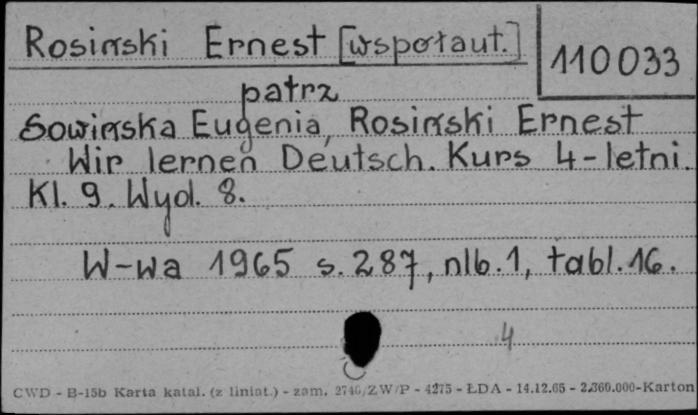 Rosiński Ernest [współaut.]
110033
patrz
Sowińska Eugenia, Rosiński Ernest
Wir lernen Deutsch. Kurs 4-letni.
Kl. 9. Wyd. 8.
W-wa 1965 s. 287, nlb. 1, tabl. 16.
4
CWD - B-15b Karta katal. (z liniat.) - zam. 2740/ZW/P - 4275 - ŁDA - 14.12.65 - 2.360.000-Karton